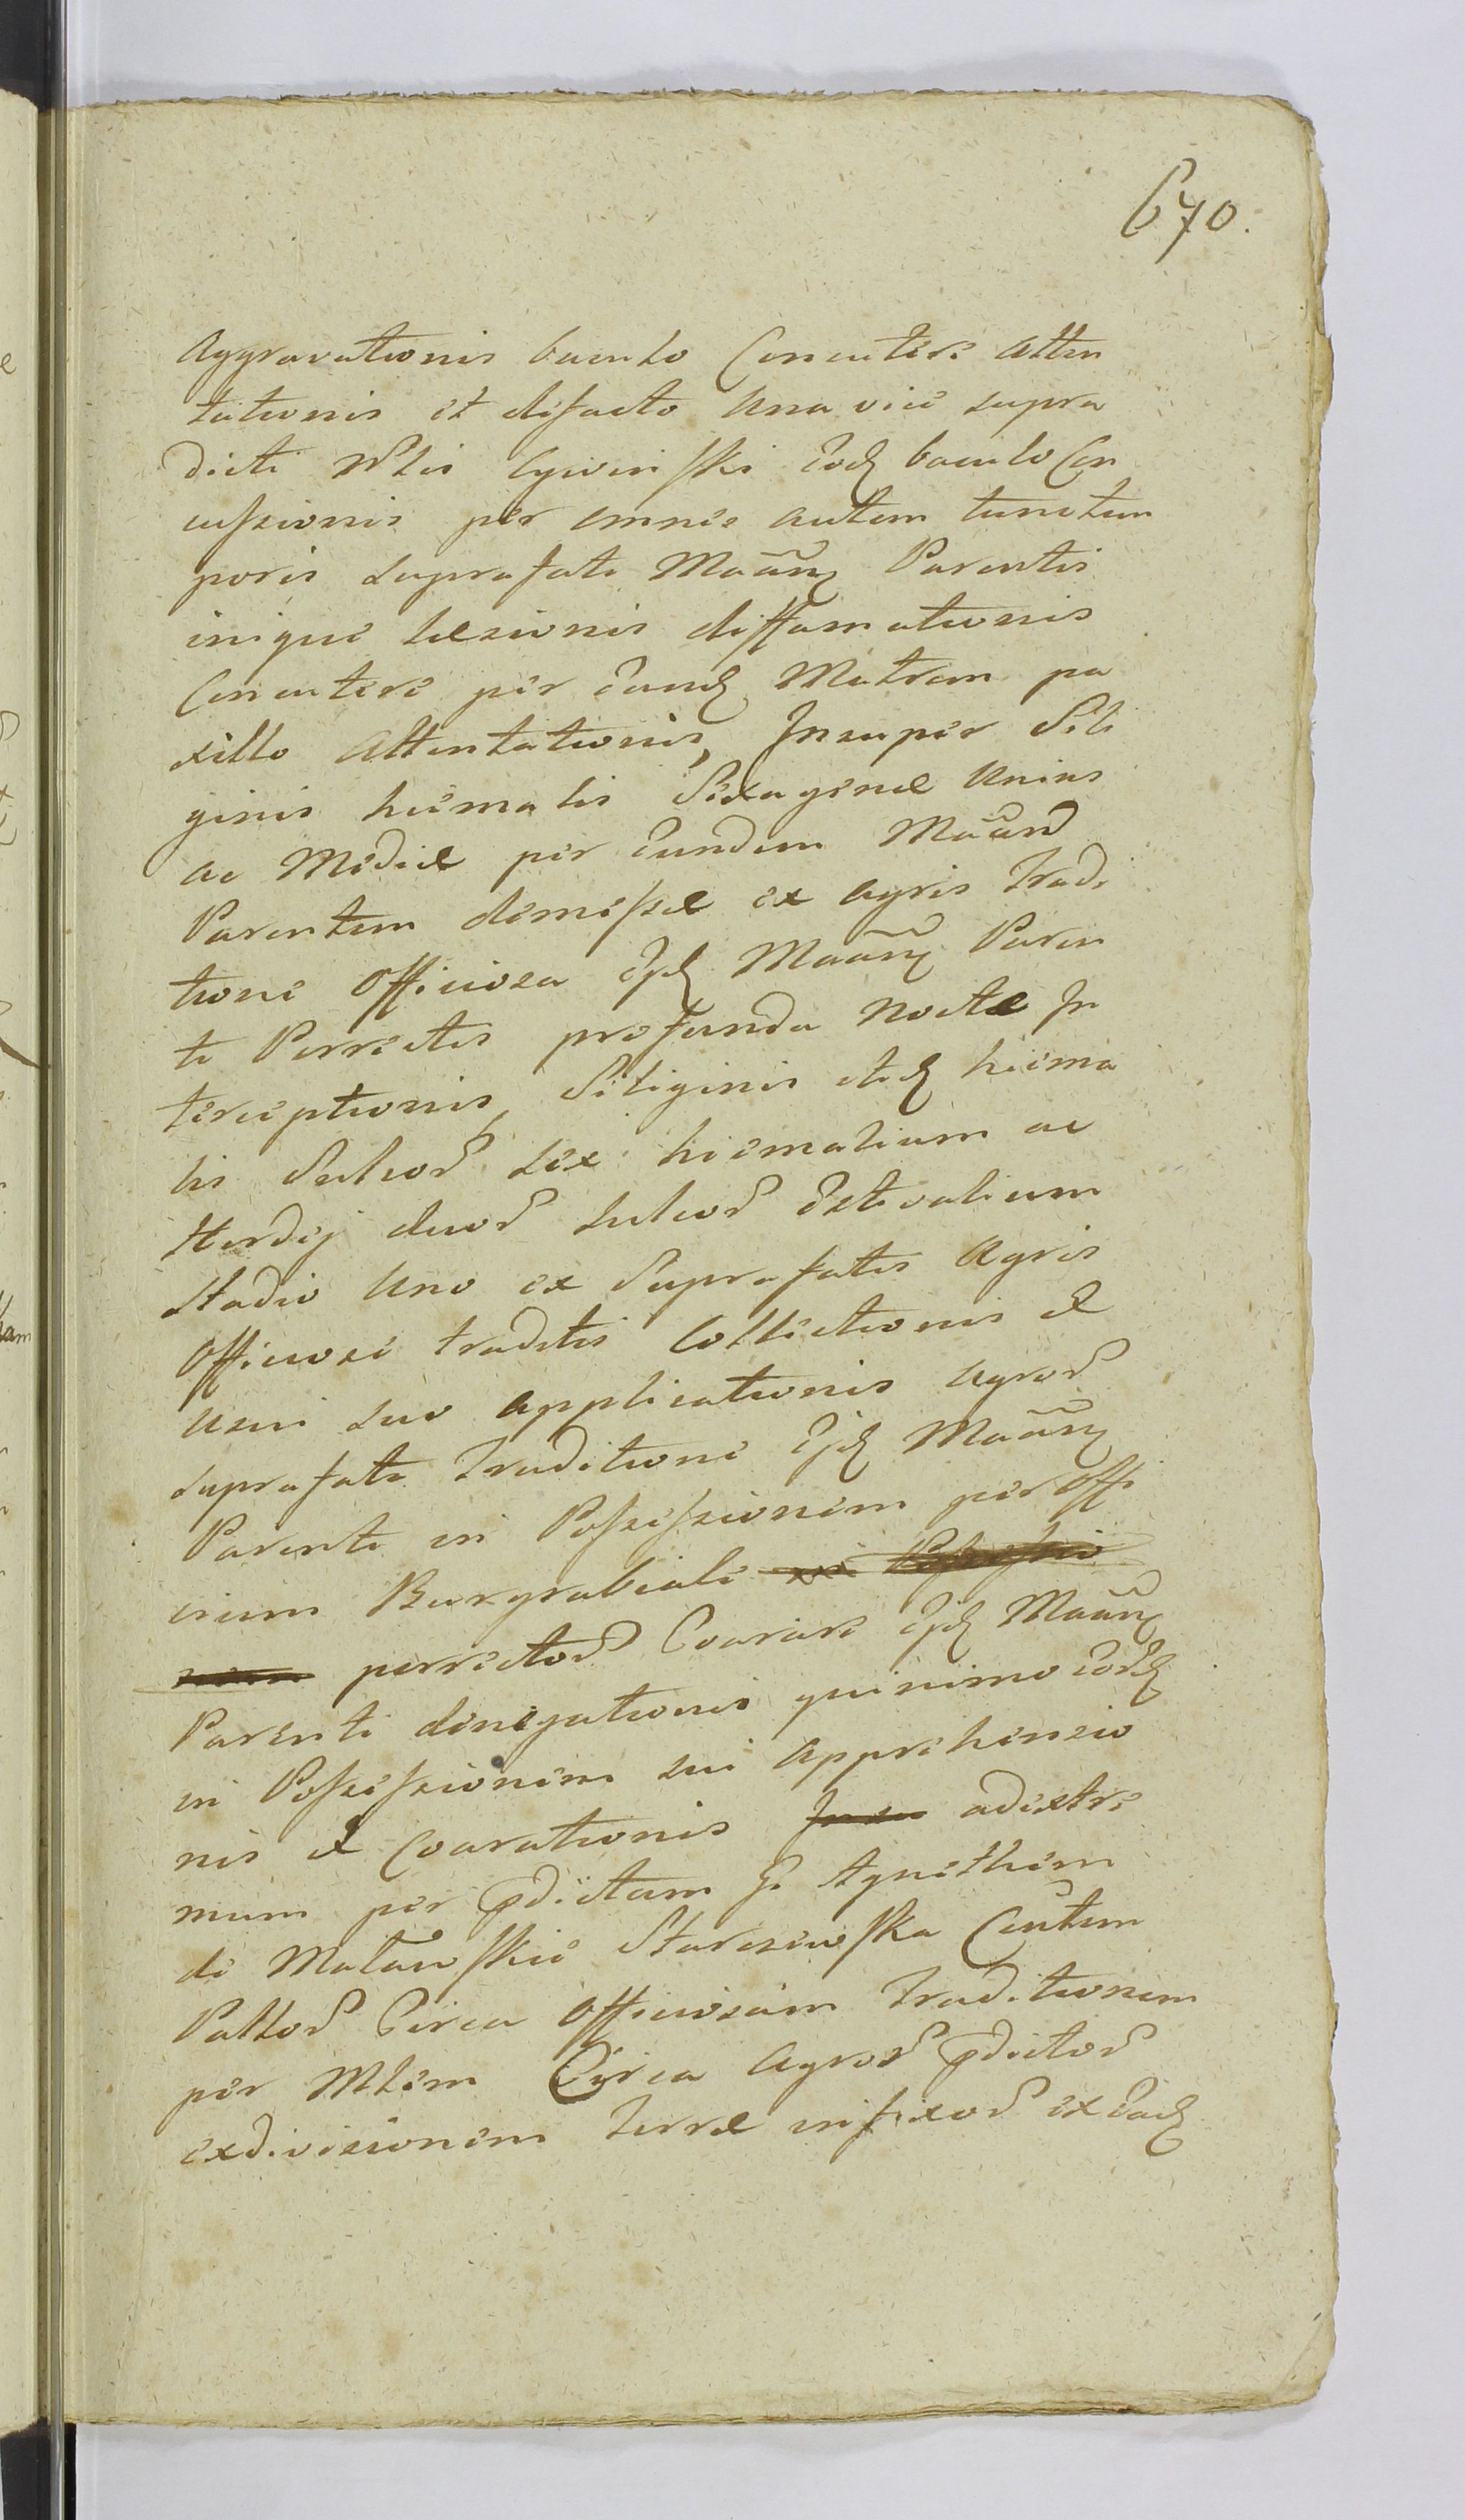 670.
Aggravationis baculo Concutere atten
tationis et defacto una vice supra
dicti Nblis Cywinski eod baculo Con
cussionis per omnes autem tunc tem
poris suprafati Maān Parentis
inique Laesionis diffamationis
Concutere per eand Matrem pa
xillo attentationis, Insuper Sili
ginis hiemalis Sexagenae Unius
ac Mediae per eundem Maānd
Parentem demissae ex agris Tradi
tione officiosa ejd Maān Paren
ti Perrectis profunda nocte In
terceptionis, Siliginis itid hiema
lis Sulcor sex hiematium ac
Hordej duor sulcor estivalium
stadio uno ex suprafatis Agris
officiose traditis Collectionis et
usui suo applicationis agror
suprafata Traditione ejd Maān
Parenti in Possessionem per offi
cium Burgrabiale
perrector Coarare ejd Maān
Parenti denegationis quinimo eord
in Possessionem sui apprehensio
nis et Coarationis adextre
mum per pdictam G Agnethem
de Malawskie Starczewska Centum
Pallor Circa officiosam Traditionem
per Mlem Circa Agros pdictos
exdivisionem terrae infixor ex ead